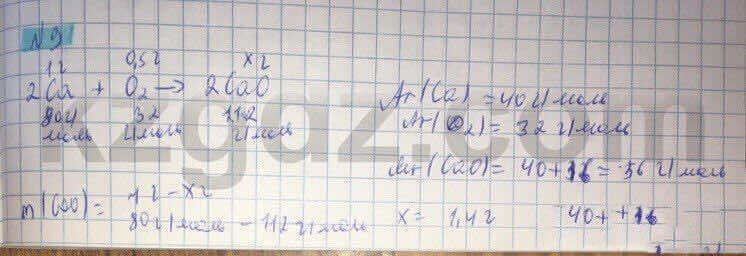 №9
1 г 0,5 г x г
2Ca + O2 → 2CaO
80 г/моль 32 г/моль 112 г/моль
Ar(Ca) = 40 г/моль
Mr(O2) = 32 г/моль
Mr(CaO) = 40+16 = 56 г/моль
m(CaO) = 1 г – x г
80 г/моль – 112 г/моль
x = 1,4 г
40+ +16
kzgaz.com